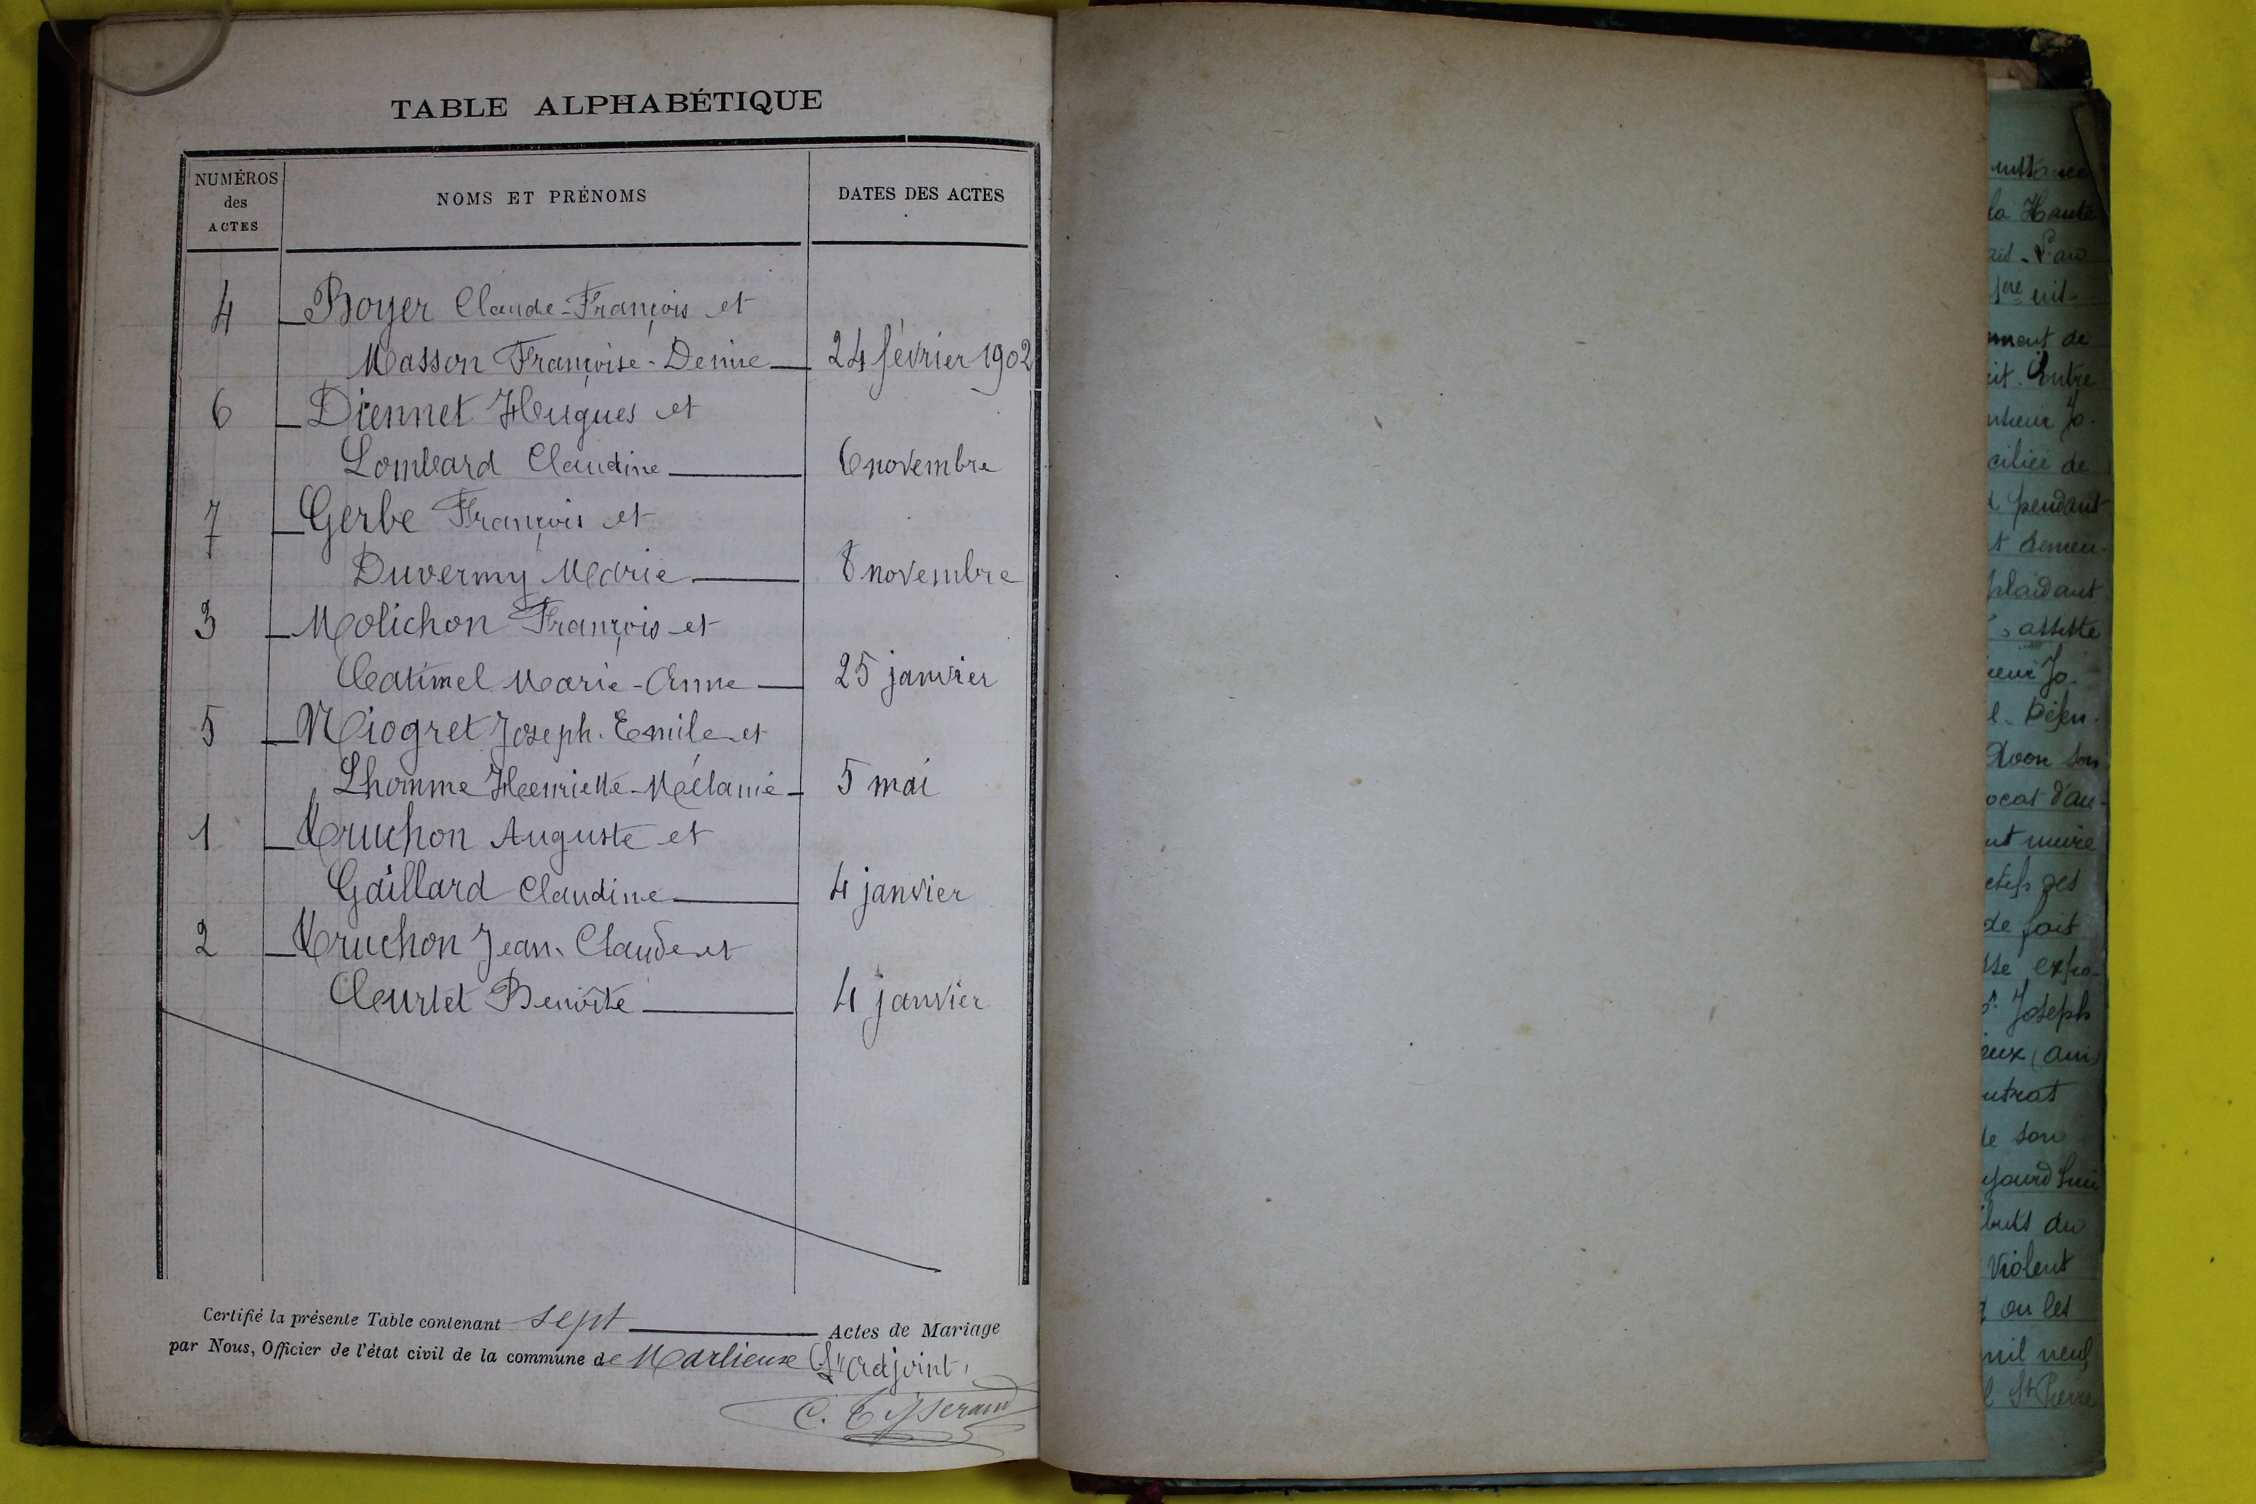 TABLE ALPHABÉTIQUE
NUMÉROS des ACTES
NOMS ET PRÉNOMS
DATES DES ACTES
4 Boyer Claude-François et
Masson Françoise-Denise 24 février 1902
6 Diennet Hugues et
Lombard Claudine 6 novembre
7 Gerbe François et
Duvermy Marie 8 novembre
3 Molichon François et
Catimel Marie-Anne 25 janvier
5 Miogret Joseph-Emile et
Lhomme Henriette-Mélanie 5 mai
1 Truchon Auguste et
Gaillard Claudine 4 janvier
2 Truchon Jean-Claude et
Curtet Benoîte 4 janvier
Certifié la présente Table contenant sept Actes de Mariage
par Nous, Officier de l'état civil de la commune de Marlieux
adjoint,
C.
la Haute
1ere
ment de
pendant
plaidant
assiste
Défen-
son
ocat d'au-
de fait
Joseph
eux (ain)
de son
du
violent
ou les
mil neuf
St Pierre